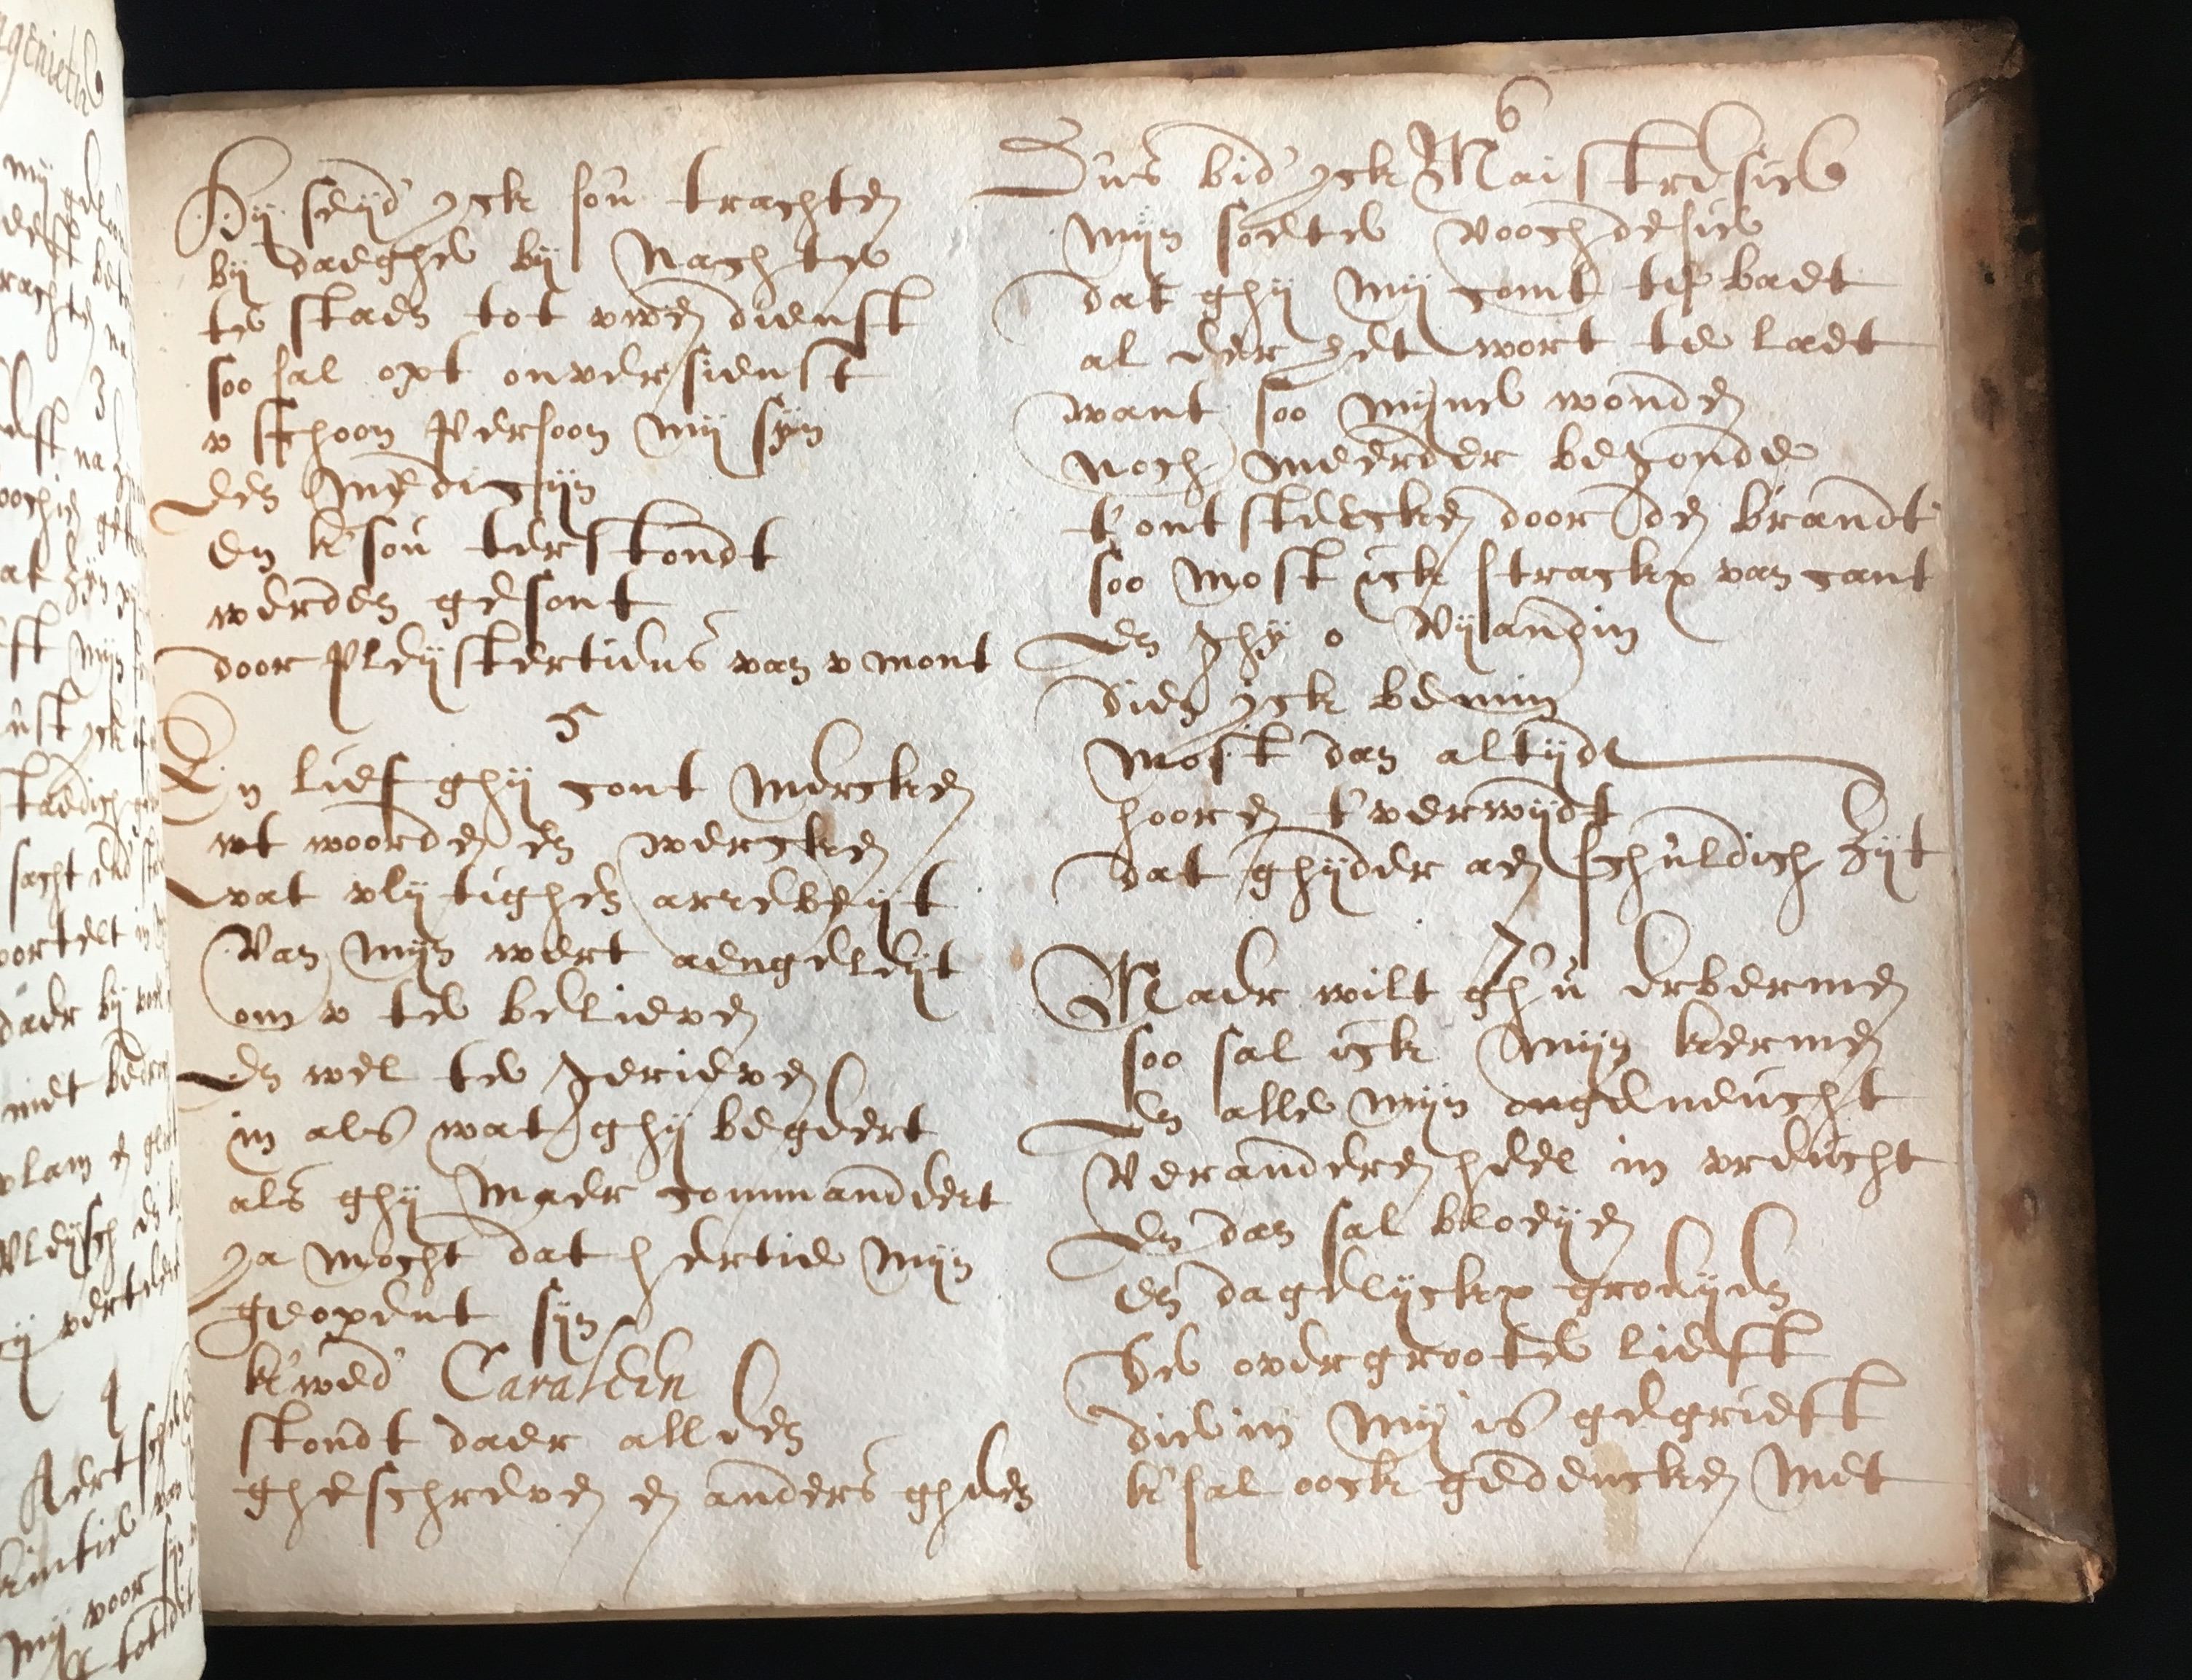 Hij seijd' yck sou trachten
bij daeghe bij nachte
te staen tot uwen dienst
soo sal opt onversienst
u schoon persoon mij sijn
een medicijn
en k'sou terstondt
werden gesont
door pleijstertiens van u mont
5
En lief ghij cont mercken
wt woorden en wercken
wat vlijtighen arrebeijt
van mijn wert aengeleijt
om u te believen
en wel te gerieven
in als wat ghij begeert
als ghij maer commandeert
ja mocht dat hertie mijn
geopent sijn
k'wed' Caraleen
stondt daer alleen
gheschreven en anders gheen
6
Dus bid' yck Maistresse
mijn soete voochdesse
dat ghij mij comt te baet
al eer het wort te laet
want soo mijne wonden
noch meerder begonde
t'ontsteecken door den brandt
soo most ick strackx van cant
en ghij o vijandin
dien yck bemin
most dan altijdt
hooren t'verwijdt
dat ghijder aen schuldich zijt
7
Maer wilt gh'u erbermen
soo sal ick mijn kermen
en alle mijn ongeneucht
veranderen heel in vreucht
en dan sal bloeijen
en dagelijckx groeijen
De overgroote liefst
die in mij is gegrieft
k'sal oock gedencken met